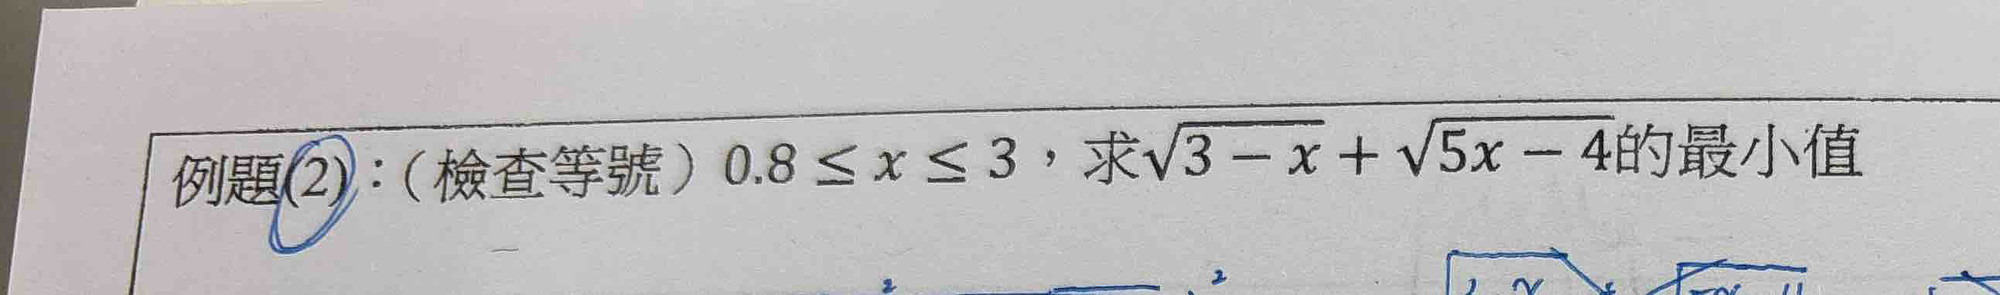 例題(2)：(檢查等號) 0.8 ≤ x ≤ 3，求√3 − x + √5x − 4的最小值